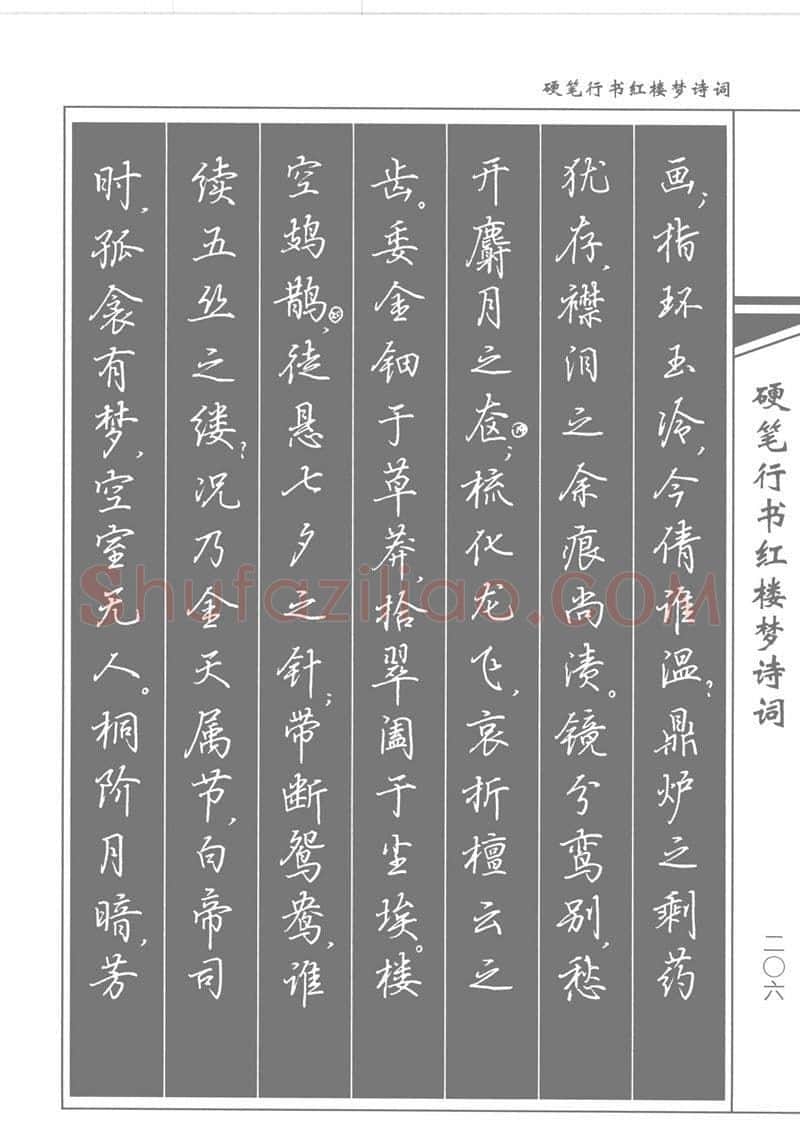 硬笔行书红楼梦诗词
画；指环玉冷，今倩谁温？鼎炉之剩药
犹存，襟泪之余痕尚渍。镜分鸾别，愁
开麝月之奁；梳化龙飞，哀折檀云之
齿。委金钿于草莽，拾翠阖于尘埃。楼
空𫛛鹊，徒悬七夕之针；带断鸳鸯，谁
续五丝之缕？况乃金天属节，白帝司
时，孤衾有梦，空室无人。桐阶月暗，芳
硬笔行书红楼梦诗词
二〇六
Shufaziliao.COM